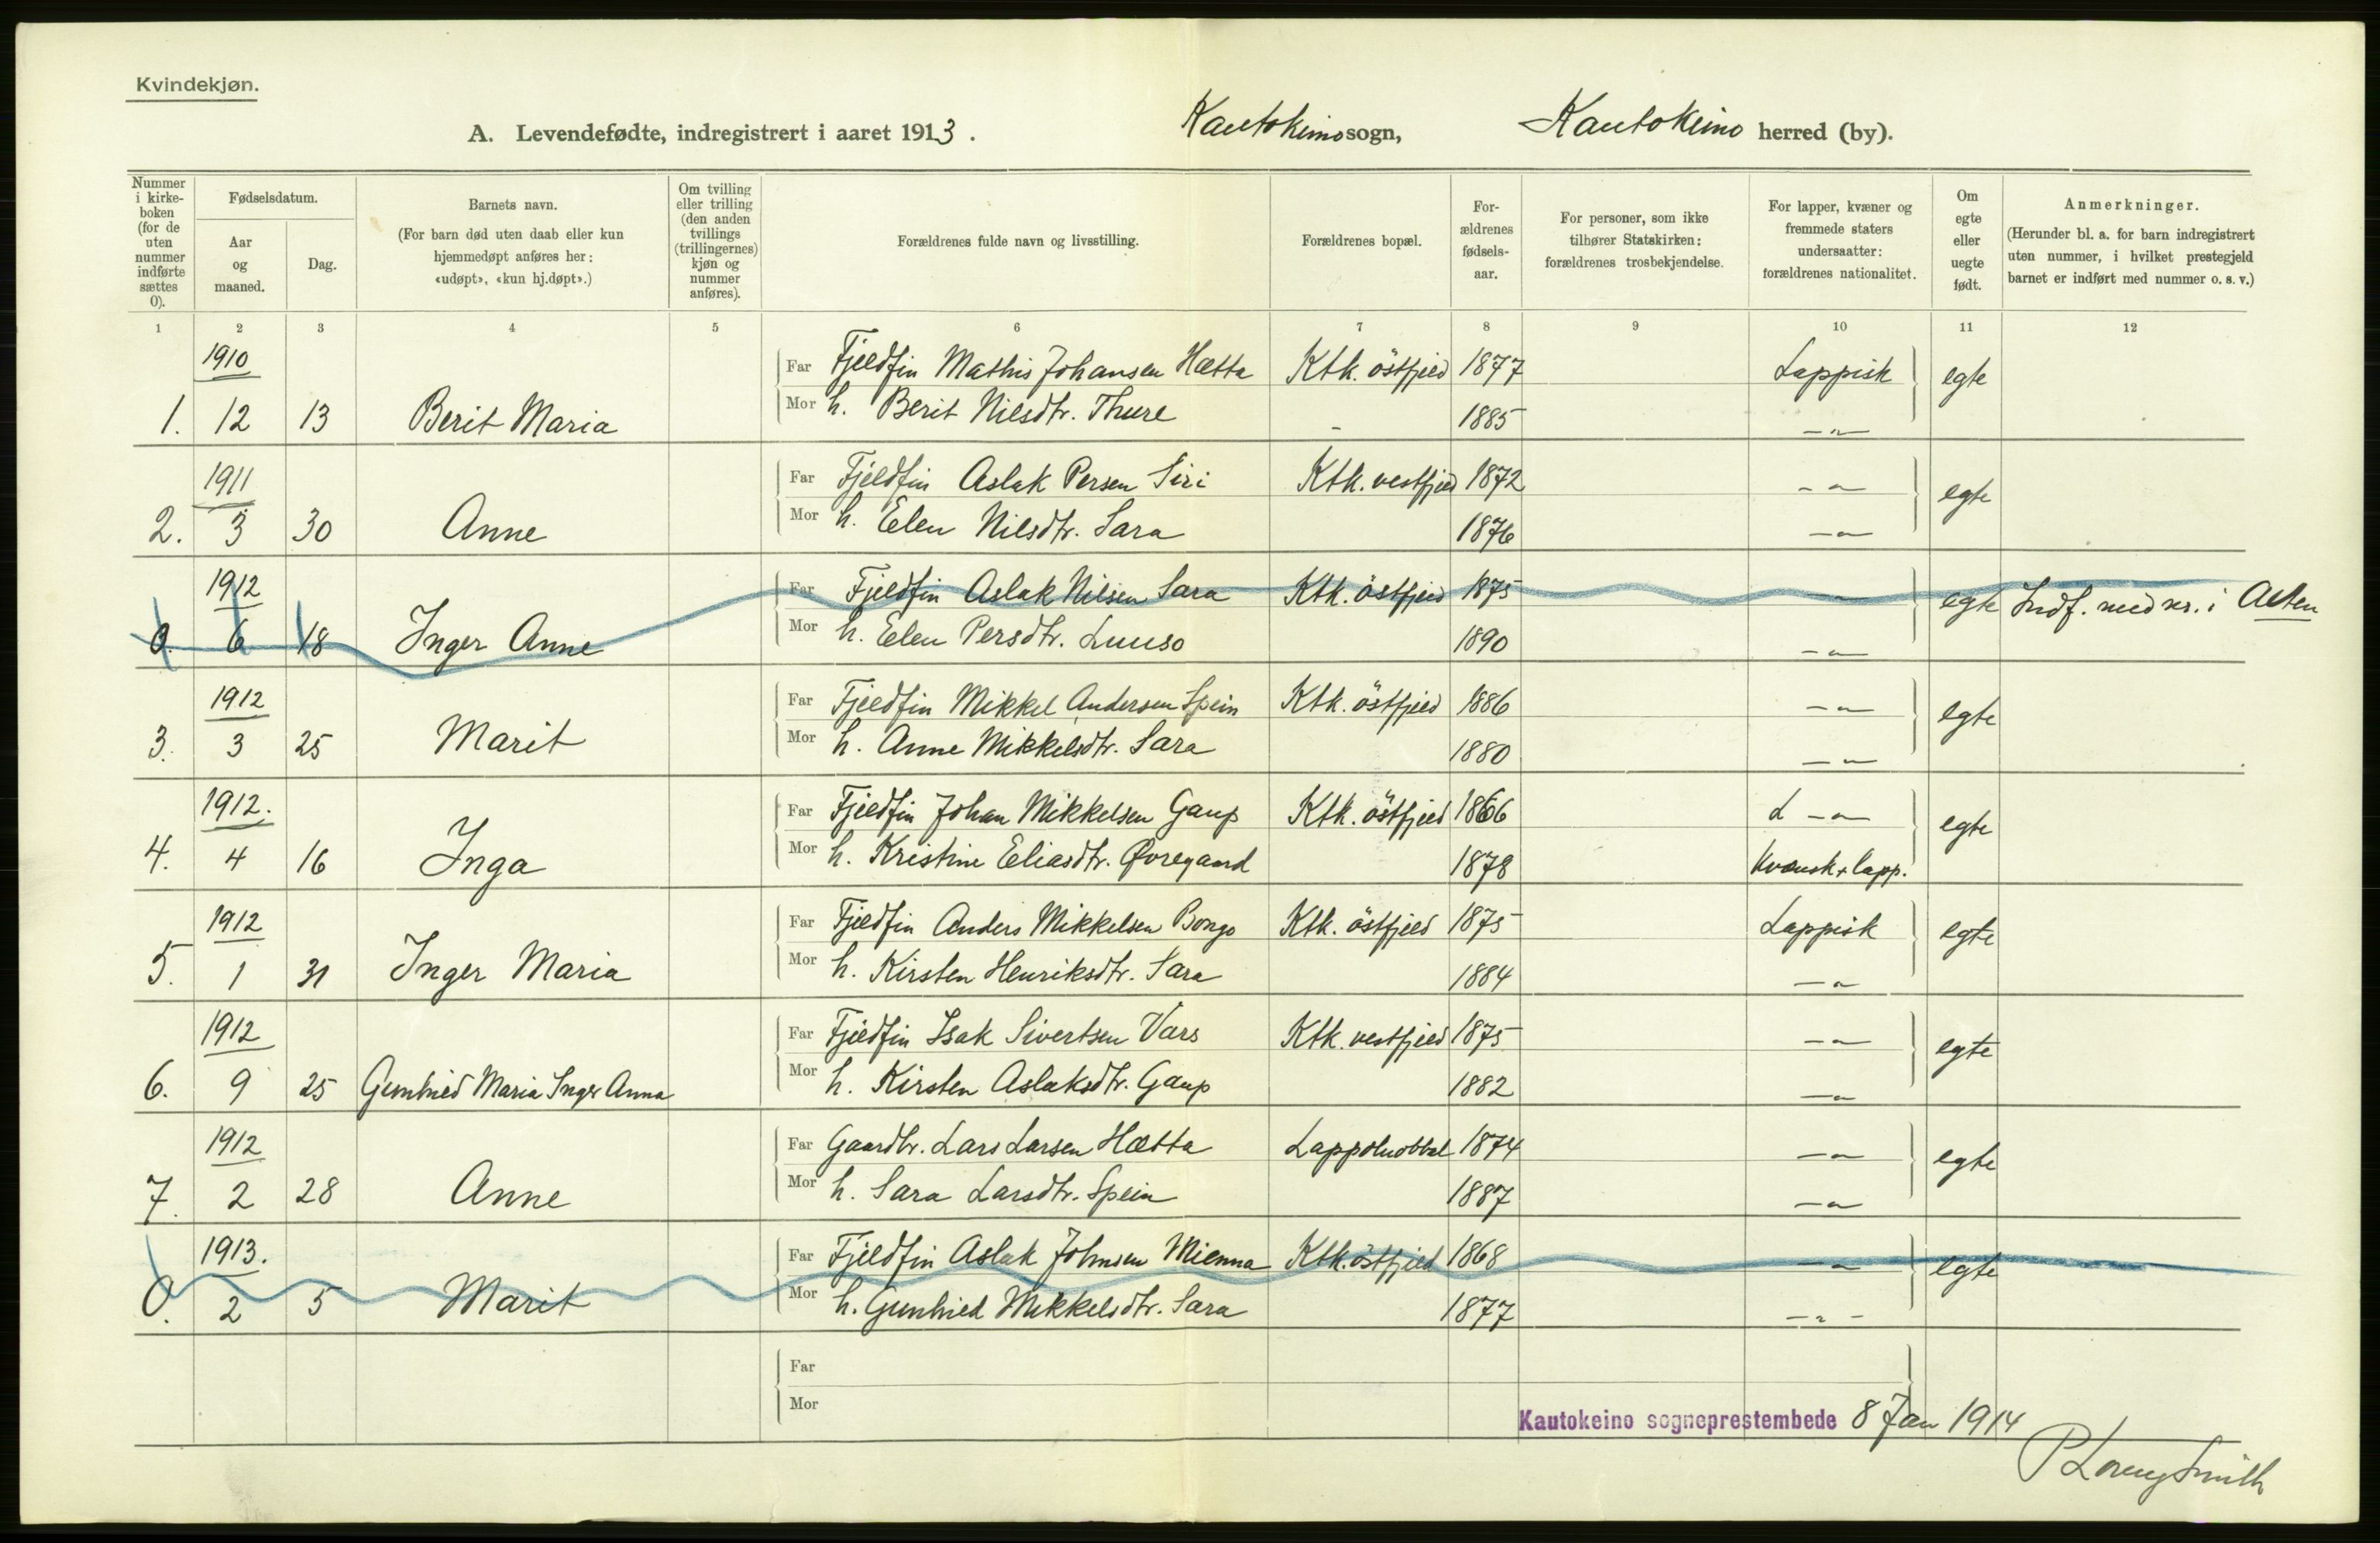 Kvindekjøn.
A. Levendefødte, indregistrert i aaret 1913. Kautokeino sogn, Kautokeino herred (by).
Nummer i kirke-boken (for de uten nummer indførte sættes 0).
Fødselsdatum.
Aar og maaned.
Dag.
Barnets navn.
(For barn død uten daab eller kun hjemmedøpt anføres her: «udøpt», «kun hj.døpt».)
Om tvilling eller trilling (den anden tvillings (trillingernes) kjøn og nummer anføres).
Forældrenes fulde navn og livsstilling.
Forældrenes bopæl.
For-ældrenes fødsels-aar.
For personer, som ikke tilhører Statskirken: forældrenes trosbekjendelse.
For lapper, kvæner og fremmede staters undersaatter: forældrenes nationalitet.
Om egte eller uegte født.
Anmerkninger.
(Herunder bl. a. for barn indregistrert uten nummer, i hvilket prestegjeld barnet er indført med nummer o. s. v.)
1 2 3 4 5 6 7 8 9 10 11 12
1910
Far Fjeldfin Mathis Johansen Hætta Ktk. östfjeld 1877 Lappisk egte
1. 12 13 Berit Maria Mor h. Berit Nilsdtr. Thure - 1885 —"—
1911
Far Fjeldfin Aslak Persen Siri Ktk. vestfjeld 1872 —"— egte
2. 3 30 Anne Mor h. Elen Nilsdtr. Sara 1876 —"—
1912
Far Fjeldfin Aslak Nilsen Sara Ktk. östfjeld 1875 —"— egte Indf. med nr. i Alten
0. 6 18 Inger Anne Mor h. Elen Persdtr. Luuso 1890 —"—
1912
Far Fjeldfin Mikkel Andersen Spein Ktk. östfjeld 1886 —"— egte
3. 3 25 Marit Mor h. Anne Mikkelsdtr. Sara 1880 —"—
1912.
Far Fjeldfin Johan Mikkelsen Gaup Ktk. östfjeld 1866 L —"— egte
4. 4 16 Inga Mor h. Kristine Eliasdtr. Øvregaard 1878 Kvænsk + lapp.
1912
Far Fjeldfin Anders Mikkelsen Bongo Ktk. östfjeld 1875 Lappisk egte
5. 1 31 Inger Maria Mor h. Kirsten Henriksdtr. Sara 1884 —"—
1912
Far Fjeldfin Isak Sivertsen Vars Ktk. vestfjeld 1875 —"— egte
6. 9 25 Gunhild Maria Inger Anna Mor h. Kirsten Aslaksdtr. Gaup 1882 —"—
1912
Far Gaardbr. Lars Larsen Hætta Lappoluobbal 1874 —"— egte
7. 2 28 Anne Mor h. Sara Larsdtr. Spein 1887 —"—
1913.
Far Fjeldfin Aslak Johnsen Mienna Ktk. östfjeld 1868 —"— egte
0. 2 5 Marit Mor h. Gunhild Mikkelsdtr. Sara 1877 —"—
Far
Mor
Kautokeino sogneprestembede 8 Jan 1914
P Lorenz Smith